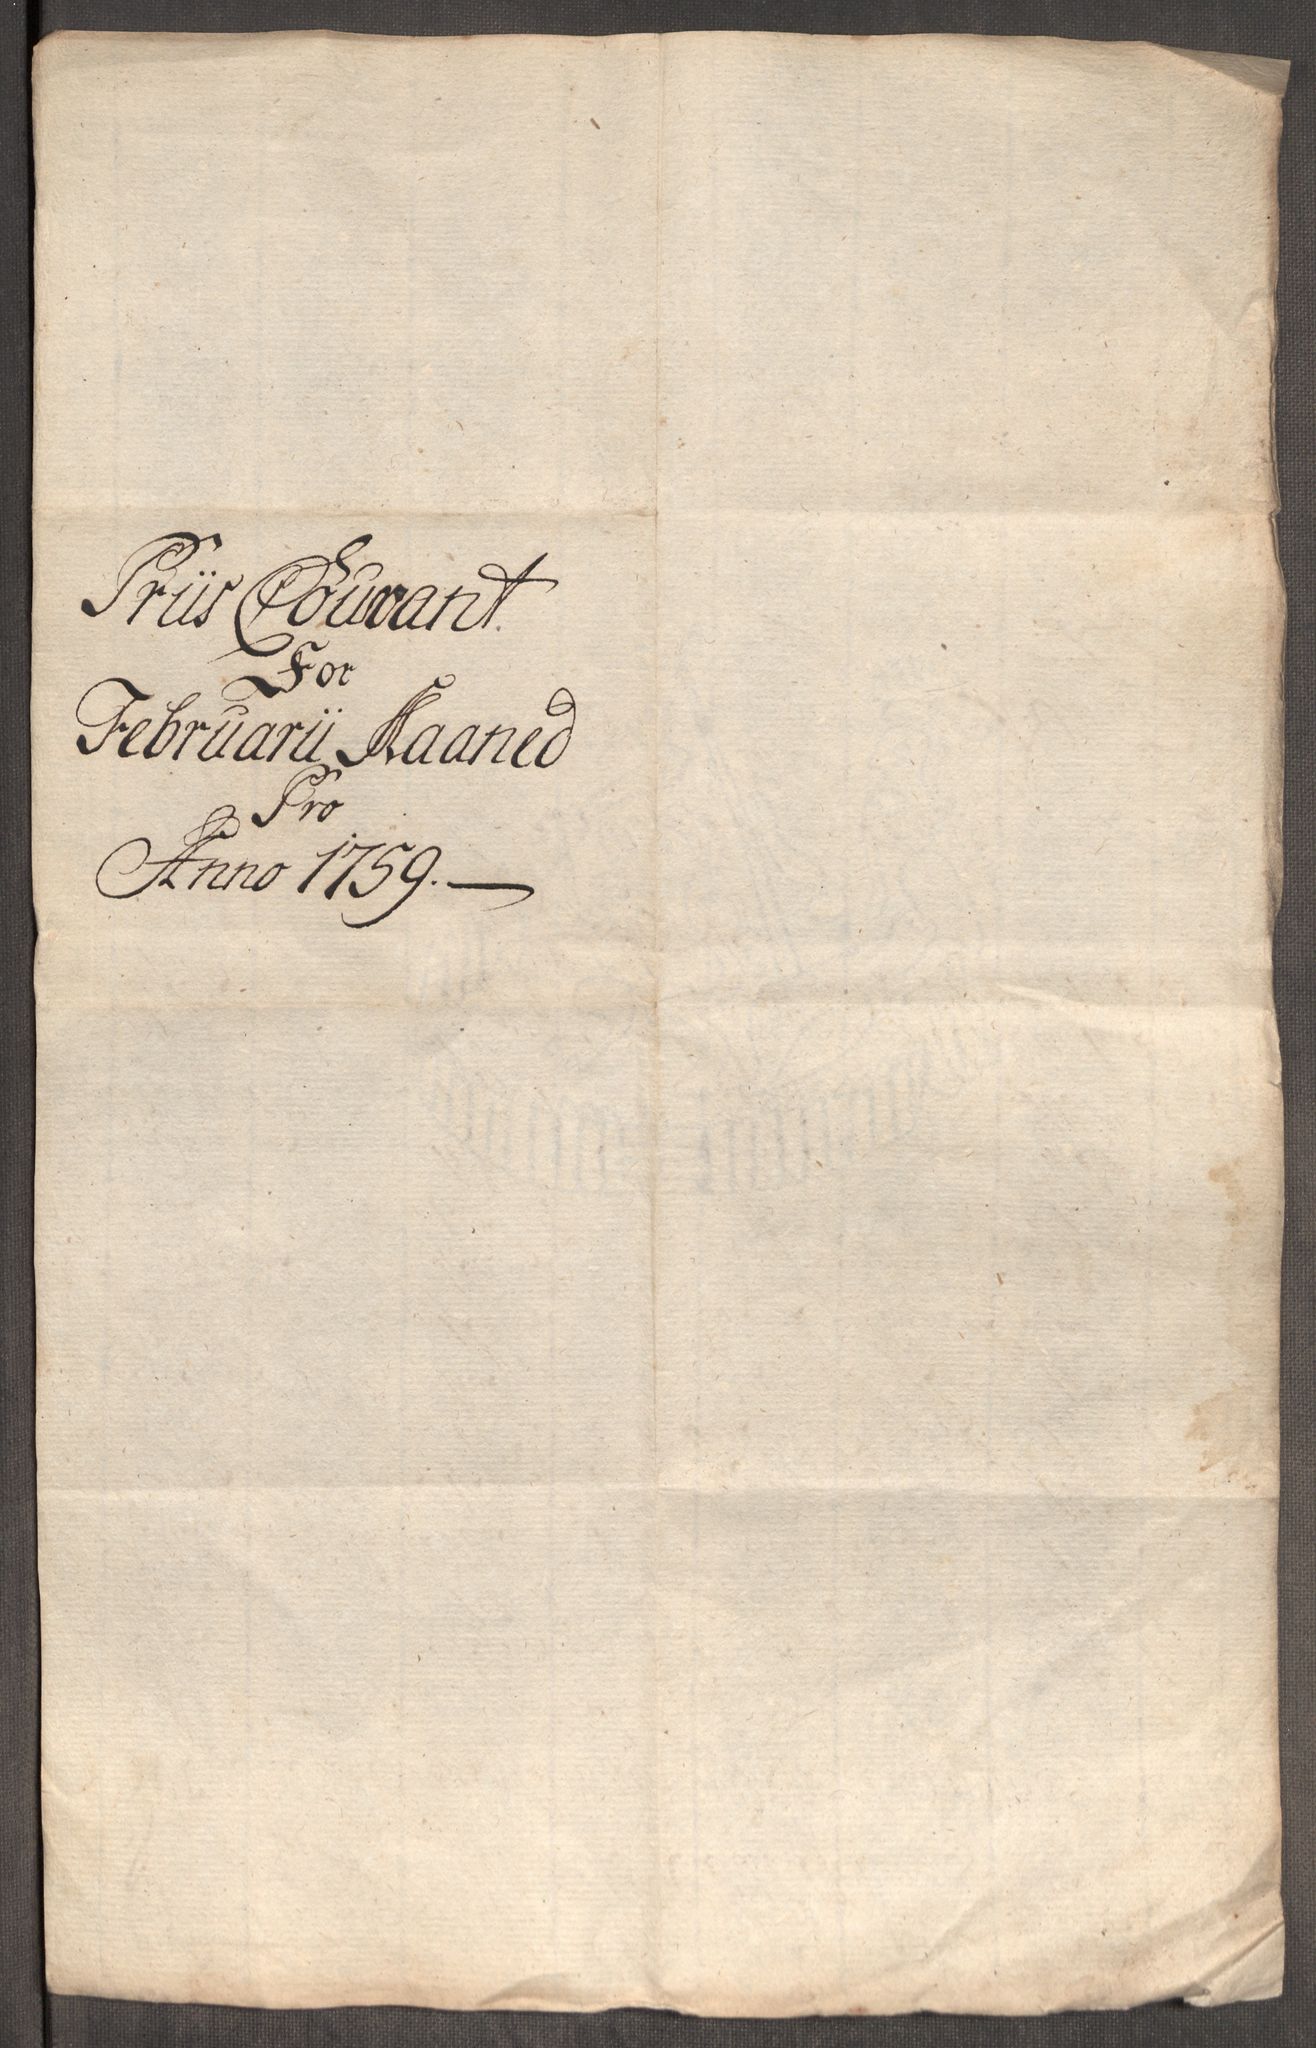 Priis Courant.
For
Februarii Maaned
Pro
Anno 1759.